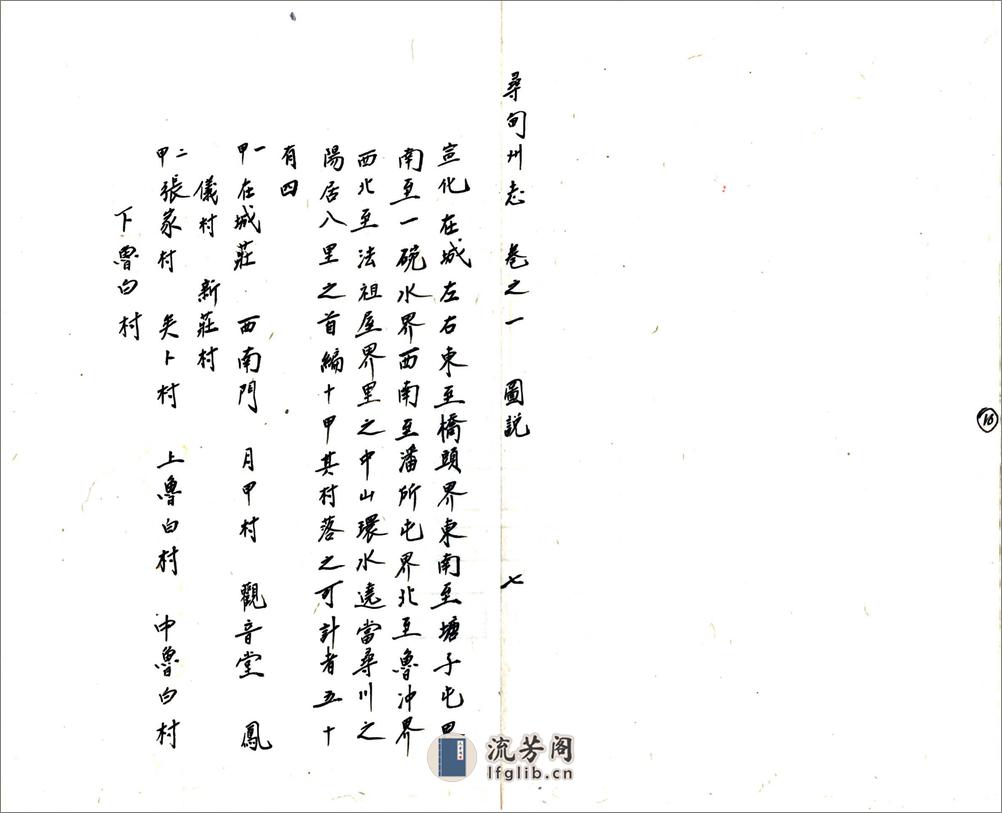 尋甸州志 卷之一 圖説 七
宣化在城左右東至橋頭界東南至塘子屯界
南至一碗水界西南至潘所屯界北至魯冲界
西北至法祖屋界里之中山環水遶當尋川之
陽居八里之首編十甲其村落之可計者五十
有四
一甲 在城莊 西南門 月甲村 觀音堂 鳳
儀村 新莊村
二甲 張家村 矣卜村 上魯白村 中魯白村
下魯白村
16
流芳阁
lfglib.cn